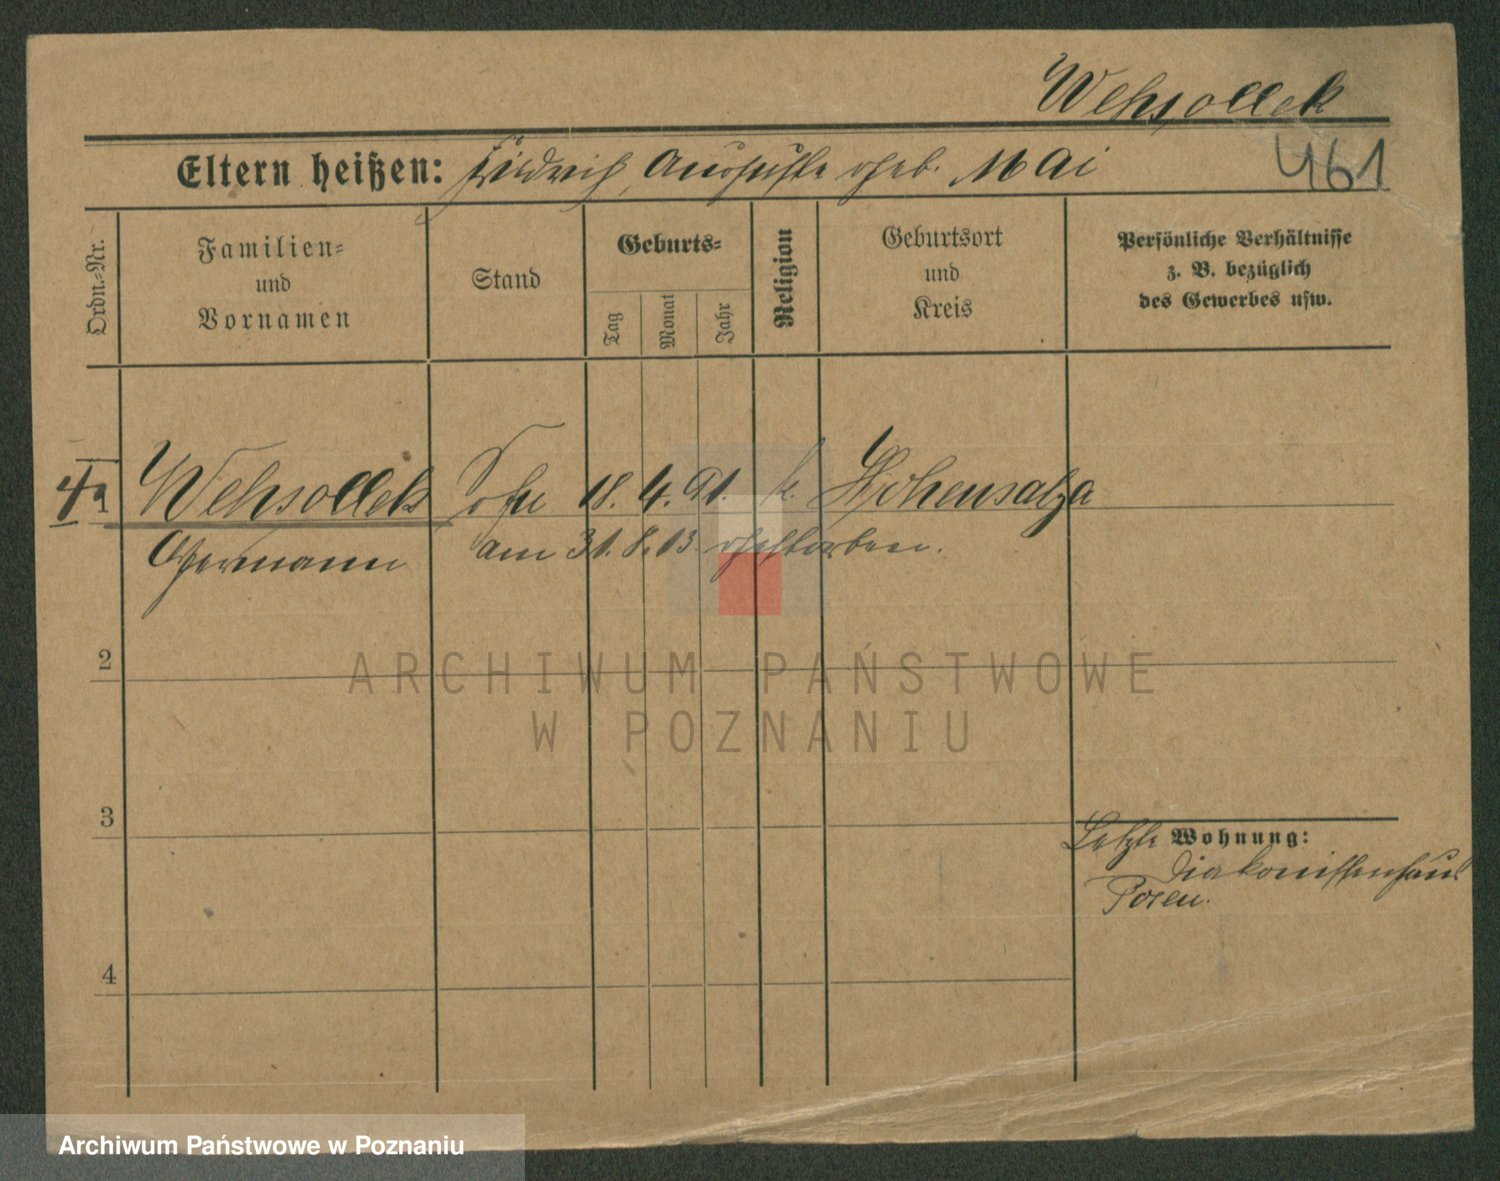 Wehsollek
Eltern heißen: Friedrich, Auguste geb. Mai
461
Ordn.-Nr.
Familien-
und
Vornamen
Stand
Geburts-
Tag
Monat
Jahr
Religion
Geburtsort
und
Kreis
Persönliche Verhältnisse
z. B. bezüglich
des Gewerbes usw.
1 Wehsollek 18. 4. 91. k. Hohensalza
Hermann am 31. 8. 13. gestorben.
2
3
4
Letzte Wohnung:
Diakonissenhaus
Posen.
ARCHIWUM PAŃSTWOWE
W POZNANIU
Archiwum Państwowe w Poznaniu